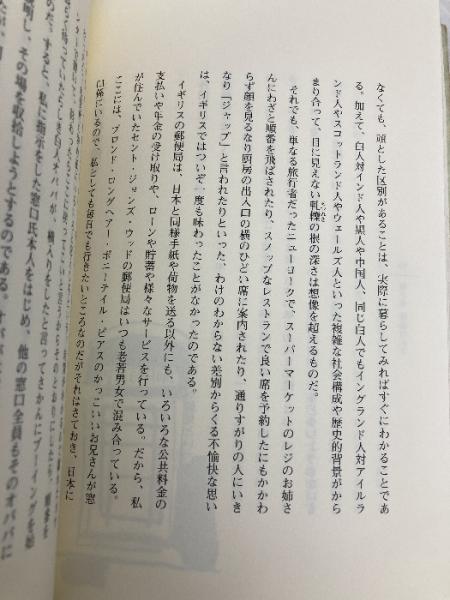 なくても、頑とした区別があることは、実際に暮らしてみればすぐにわかることであ
る。加えて、白人対インド人や黒人や中国人、同じ白人でもイングランド人対アイルラ
ンド人やスコットランド人やウェールズ人といった複雑な社会構成や歴史的背景がから
まり合って、目に見えない軋轢の根の深さは想像を超えるものだ。
それでも、単なる旅行者だったニューヨークで、スーパーマーケットのレジのお姉さ
んにわざと順番を飛ばされたり、スノッブなレストランで良い席を予約したにもかかわ
らず顔を見るなり厨房の出入口の横のひどい席に案内されたり、通りすがりの人にいき
なり「ジャップ」と言われたりといった、わけのわからない差別からくる不愉快な思い
は、イギリスではついぞ一度も味わったことがなかったのである。
イギリスの郵便局は、日本と同様手紙や荷物を送る以外にも、いろいろな公共料金の
支払いや年金の受け取りや、ローンや貯蓄や様々なサービスを行っている。だから、私
が住んでいたセント・ジョンズ・ウッドの郵便局はいつも老若男女で混み合っている。
ここには、ブロンド・ロングヘアー・ポニーテイル・ピアスのかっこいいお兄さんが窓
口係にいるので、私としても毎日でも行きたいところなのだがそれはさておき、日本に
のだ。すると、私に指示した窓口氏本人をはじめ、他の窓口全員もそのオババに
明し、その場を収拾しようとするのである。オバ